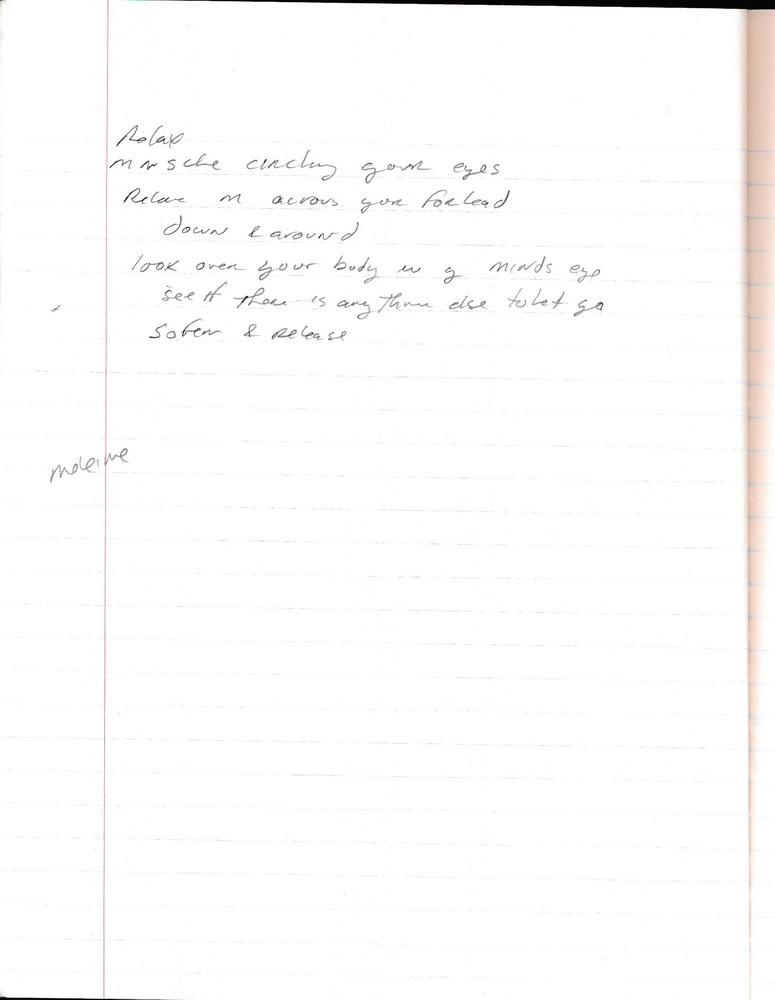 Relax
muscle circling your eyes
Relax m across your forhead
down & around
look over your body in y minds eye
see if there is any thing else to let go
soften & release